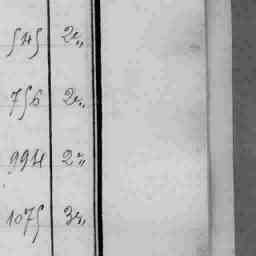 545 2„
756 2„
994 2„
1075 3„